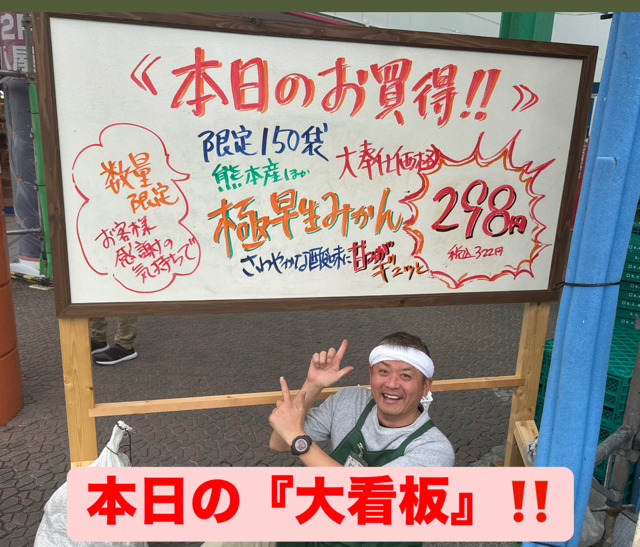 《本日のお買得!!》
限定150袋
熊本産ほか
大奉仕価格
極早生みかん
298円
税込322円
さわやかな酸味に甘さがギュッと
数量
限定
お客様
感謝の
気持ちで
本日の『大看板』‼